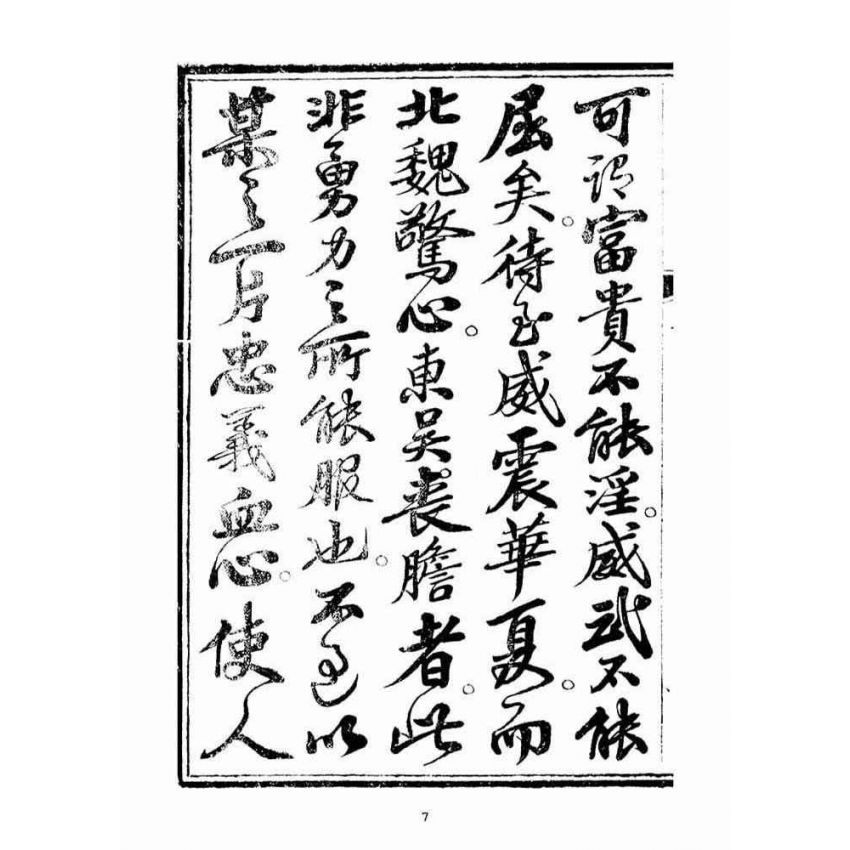 可謂富貴不能淫。威武不能
屈矣。待至威震華夏。而
北魏驚心。東吴喪膽者。此
非勇力之所能服也。不過以
某之一片忠義血心。使人
7